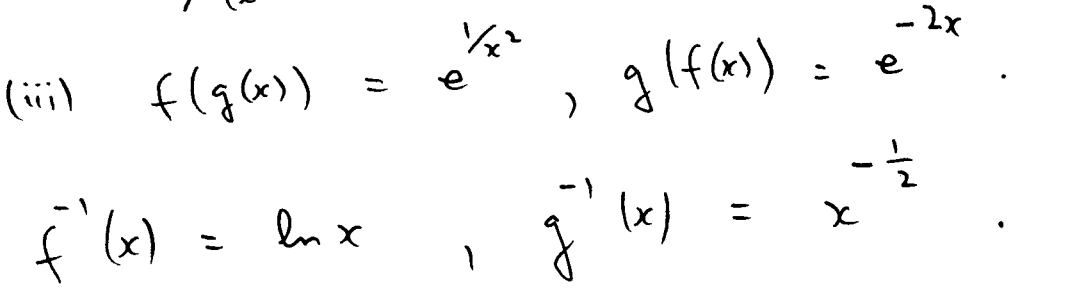 (iii) f(g(x)) = e^{1/x^2} , g(f(x)) = e^{-2x} .
f^{-1}(x) = ln x , g^{-1}(x) = x^{-\frac{1}{2}} .